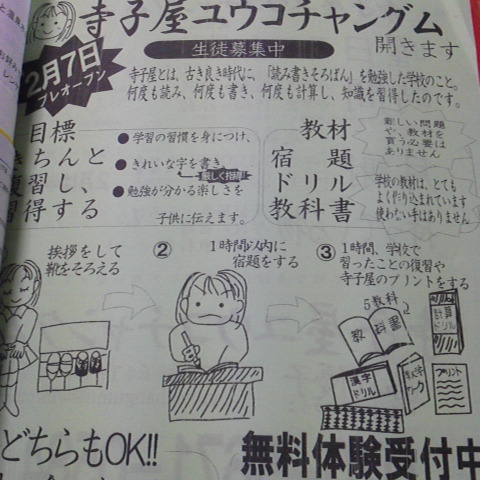 寺子屋ユウコチャングム
生徒募集中
開きます
2月7日
プレオープン
寺子屋とは、古き良き時代に、「読み書きそろばん」を勉強した学校のこと。
何度も読み、何度も書き、何度も計算し、知識を習得したのです。
目標
きちんと
復習し、
習得する
●学習の習慣を身につけ、
●きれいな字を書き、
厳しく指導
●勉強が分かる楽しさを
子供に伝えます。
教材
宿題
ドリル
教科書
難しい問題
や、教材を
買う必要は
ありません
学校の教材は、とても
よく作り込まれています
使わない手はありません
挨拶をして
靴をそろえる
②
1時間以内に
宿題をする
③
1時間、学校で
習ったことの復習や
寺子屋のプリントをする
5教科
教科書
計算
ドリル
漢字
ドリル
プリント
どちらもOK!!
無料体験受付中